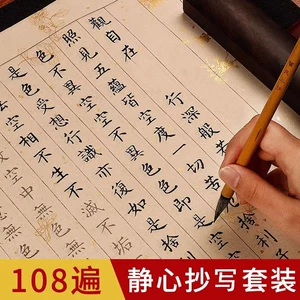 觀自在 行深般若
照見五蘊皆空度一切苦
色不異空空不異色色即
是色受想行識亦復如是捨利子
空相不生不滅不垢
空中無色
108遍
静心抄写套装